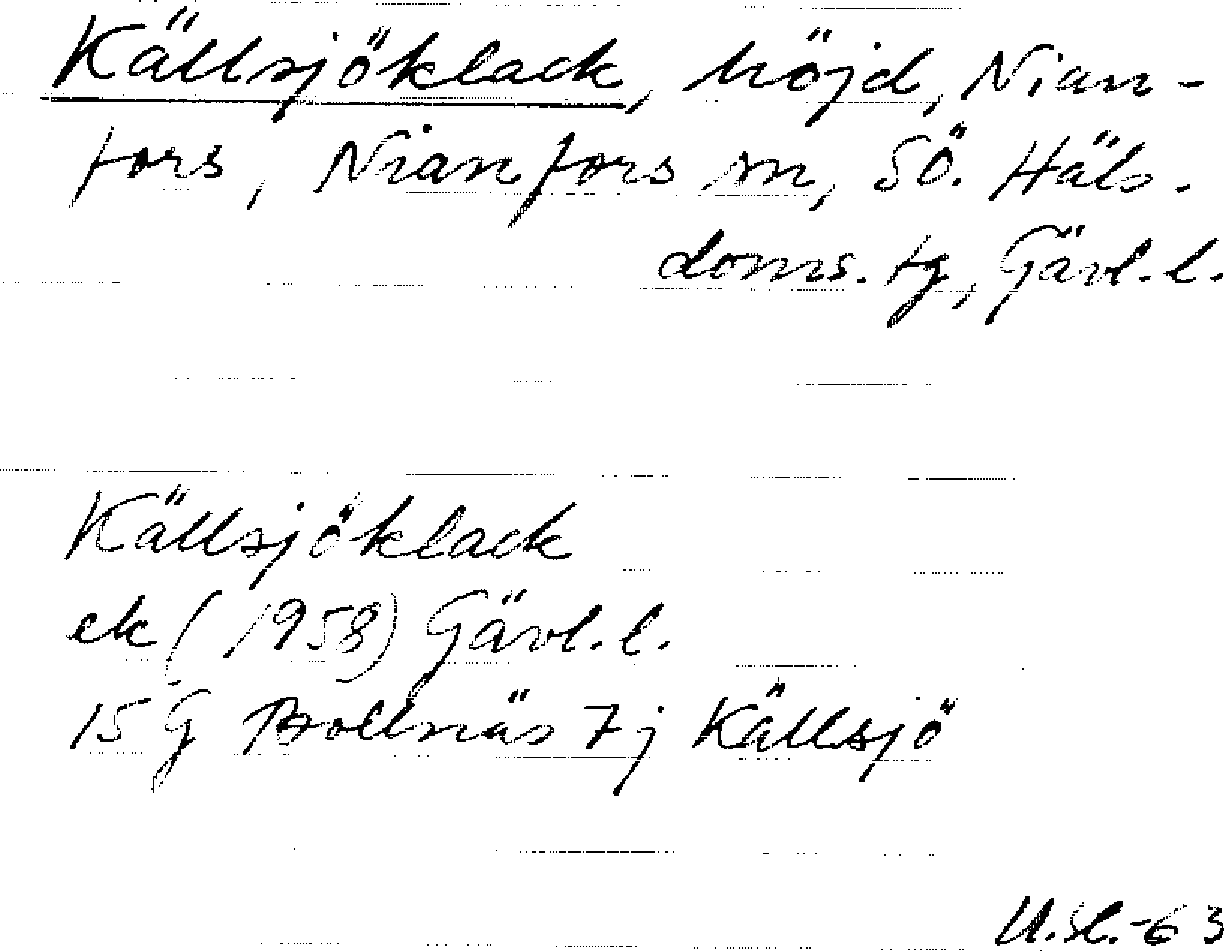 Källsjöklack, höjd, Nian-
fors, Nianfors sn, SÖ. Häls.
doms. tg, Gävl. l.
Källsjöklack
ek (1958) Gävl. l.
15 G Bollnäs 7j Källsjö
U.sl.-63